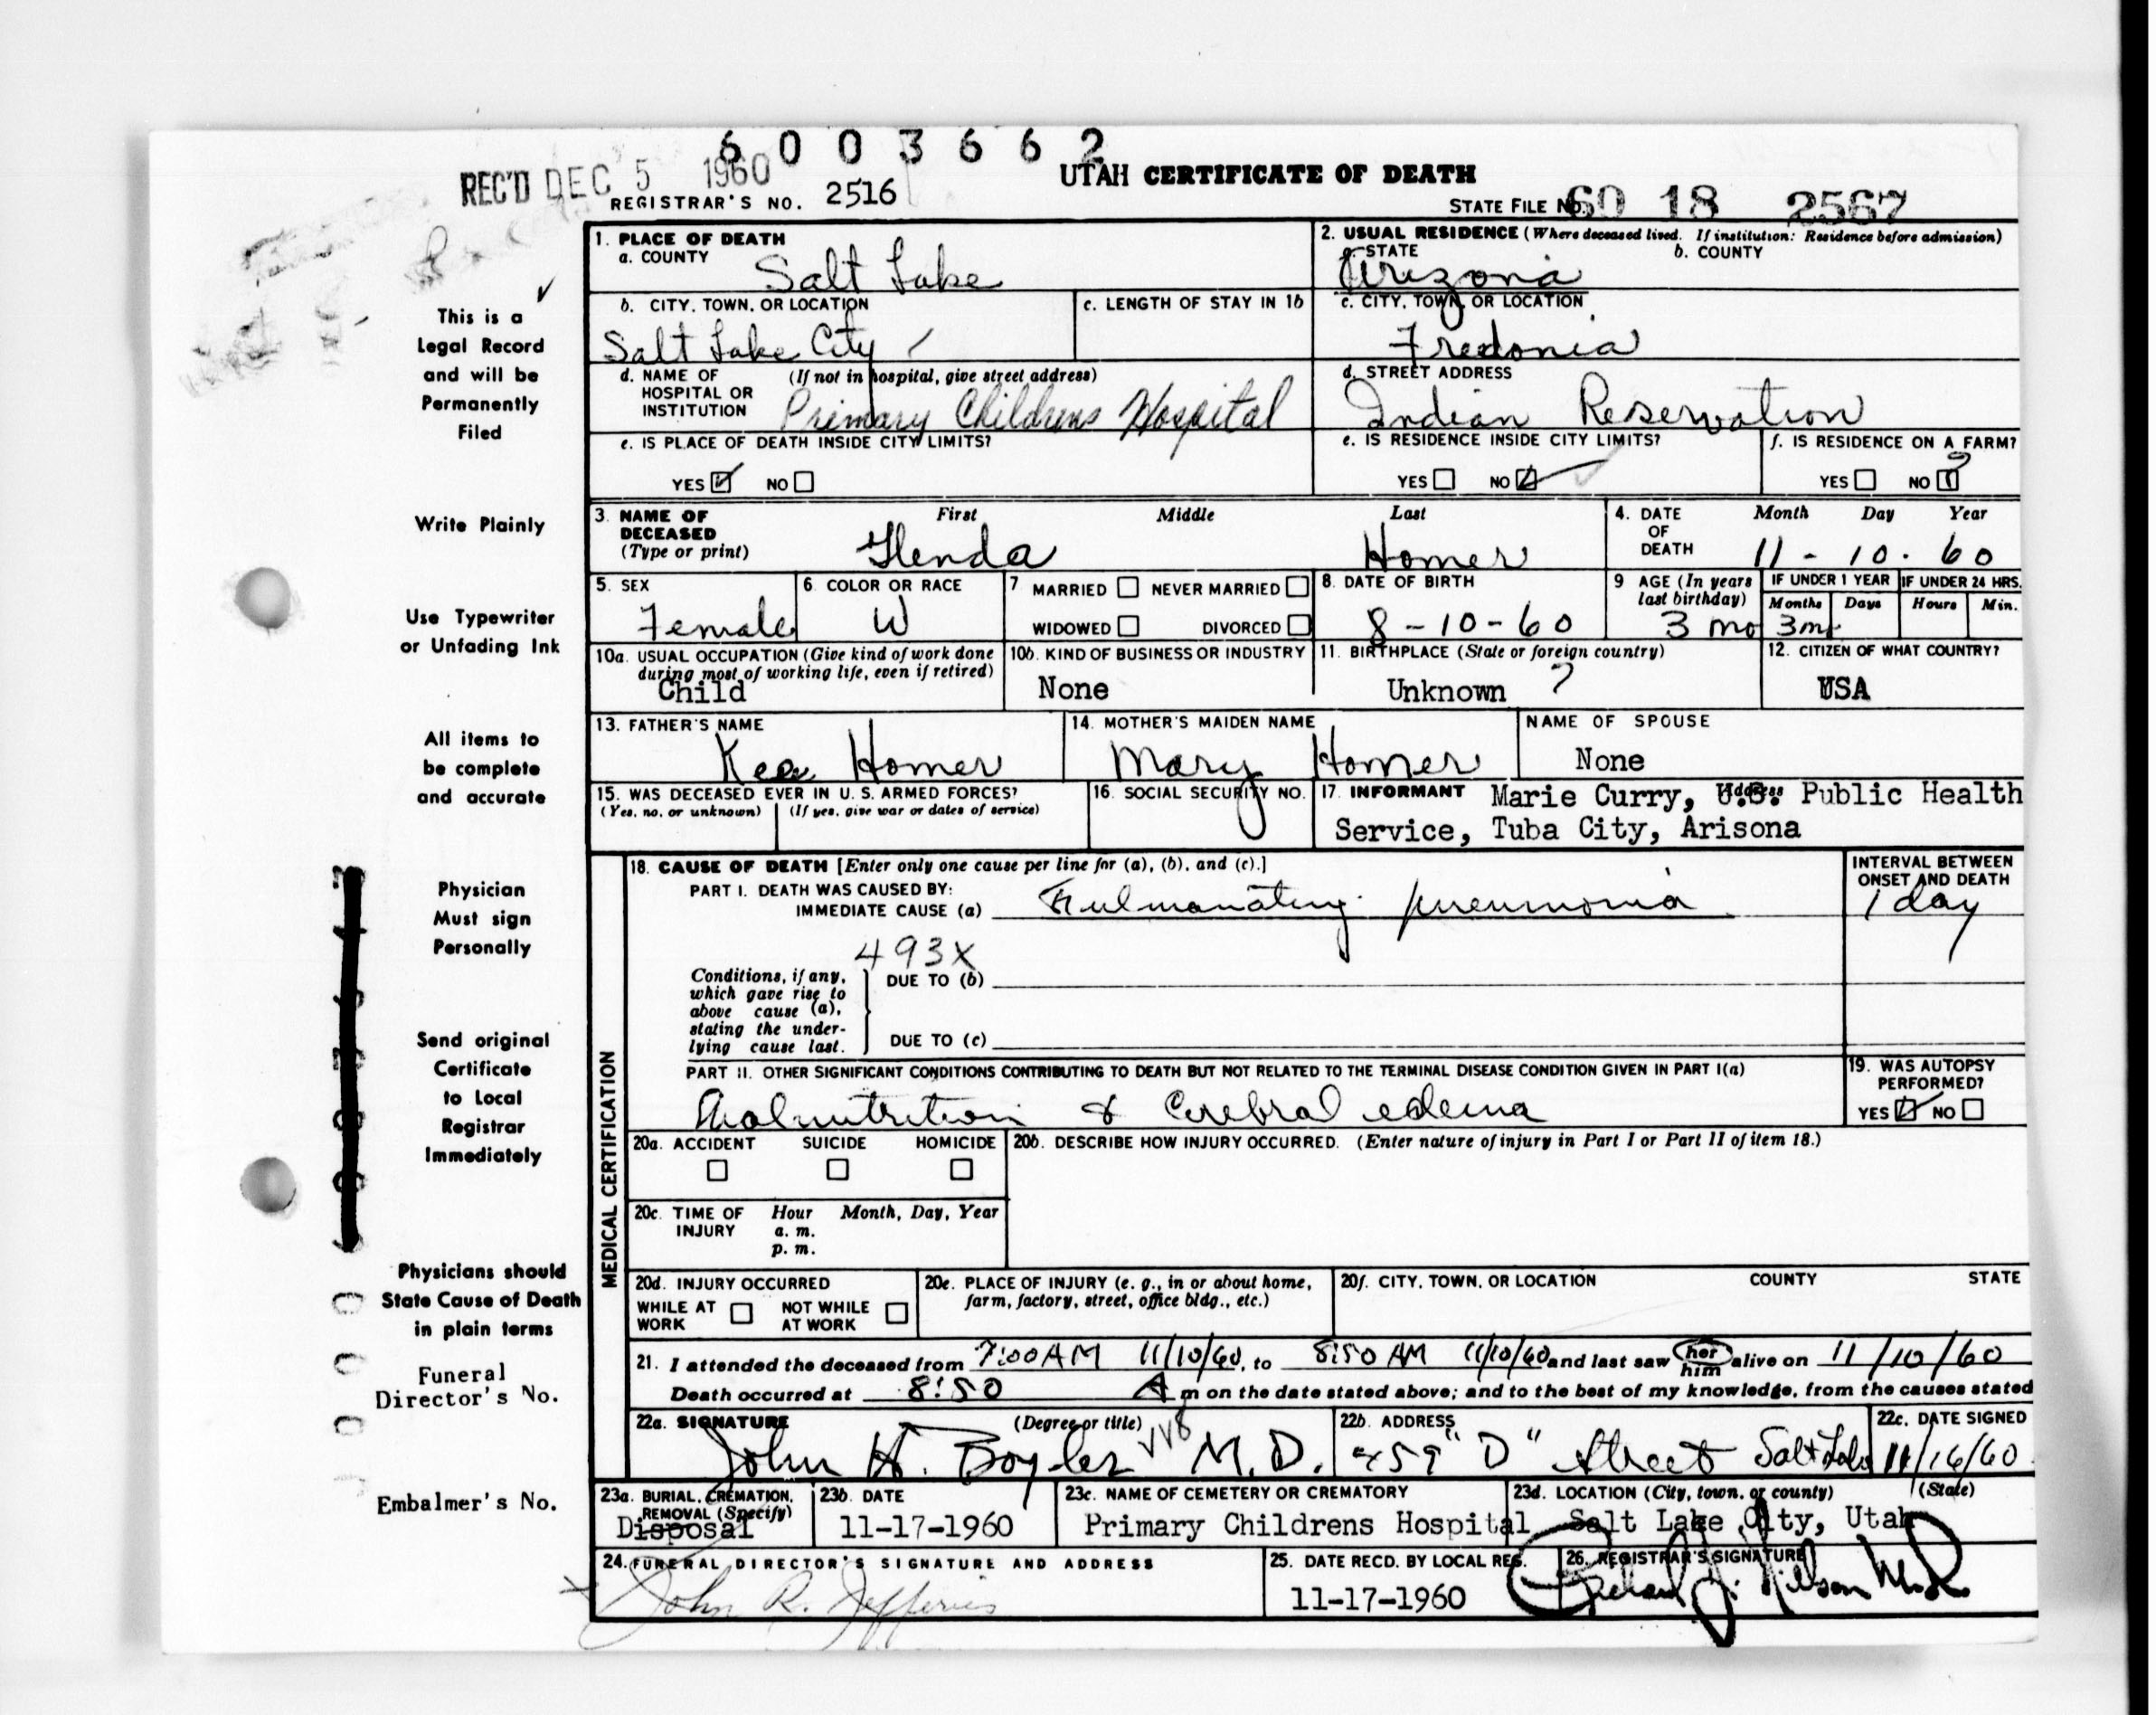 6003662
REC'D DEC 5 1960
UTAH CERTIFICATE OF DEATH
REGISTRAR'S NO. 2516
STATE FILE NO. 60 18 2567
This is a
Legal Record
and will be
Permanently
Filed
Write Plainly
Use Typewriter
or Unfading Ink
All items to
be complete
and accurate
Physician
Must sign
Personally
Send original
Certificate
to Local
Registrar
Immediately
Physicians should
State Cause of Death
in plain terms
Funeral
Director's No.
Embalmer's No.
1. PLACE OF DEATH
a. COUNTY Salt Lake
b. CITY, TOWN, OR LOCATION
Salt Lake City
c. LENGTH OF STAY IN 1b
d. NAME OF HOSPITAL OR INSTITUTION (If not in hospital, give street address)
Primary Childrens Hospital
e. IS PLACE OF DEATH INSIDE CITY LIMITS?
YES NO
2. USUAL RESIDENCE (Where deceased lived. If institution: Residence before admission)
a. STATE Arizona
b. COUNTY
c. CITY, TOWN, OR LOCATION
Fredonia
d. STREET ADDRESS
Indian Reservation
e. IS RESIDENCE INSIDE CITY LIMITS?
YES NO
f. IS RESIDENCE ON A FARM?
YES NO
3. NAME OF DECEASED (Type or print)
First Middle Last
Glenda Homer
4. DATE OF DEATH
Month Day Year
11-10-60
5. SEX
Female
6. COLOR OR RACE
W
7 MARRIED NEVER MARRIED
WIDOWED DIVORCED
8. DATE OF BIRTH
8-10-60
9 AGE (In years last birthday)
3 mo
IF UNDER 1 YEAR
Months Days
3m
IF UNDER 24 HRS.
Hours Min.
10a. USUAL OCCUPATION (Give kind of work done during most of working life, even if retired)
Child
10b. KIND OF BUSINESS OR INDUSTRY
None
11. BIRTHPLACE (State or foreign country)
Unknown ?
12. CITIZEN OF WHAT COUNTRY?
USA
13. FATHER'S NAME
Kee Homer
14. MOTHER'S MAIDEN NAME
Mary Homer
NAME OF SPOUSE
None
15. WAS DECEASED EVER IN U. S. ARMED FORCES?
(Yes, no, or unknown) (If yes, give war or dates of service)
16. SOCIAL SECURITY NO.
17. INFORMANT Address
Marie Curry, U.S. Public Health
Service, Tuba City, Arisona
MEDICAL CERTIFICATION
18. CAUSE OF DEATH [Enter only one cause per line for (a), (b), and (c).]
PART I. DEATH WAS CAUSED BY:
IMMEDIATE CAUSE (a) Fulmanating pneumonia
INTERVAL BETWEEN ONSET AND DEATH
1 day
493X
Conditions, if any, which gave rise to above cause (a), stating the underlying cause last.
DUE TO (b)
DUE TO (c)
PART II. OTHER SIGNIFICANT CONDITIONS CONTRIBUTING TO DEATH BUT NOT RELATED TO THE TERMINAL DISEASE CONDITION GIVEN IN PART I(a)
Malnutrition & Cerebral edema
19. WAS AUTOPSY PERFORMED?
YES NO
20a. ACCIDENT SUICIDE HOMICIDE
20b. DESCRIBE HOW INJURY OCCURRED. (Enter nature of injury in Part I or Part II of item 18.)
20c. TIME OF INJURY
Hour Month, Day, Year
a. m.
p. m.
20d. INJURY OCCURRED
WHILE AT WORK NOT WHILE AT WORK
20e. PLACE OF INJURY (e. g., in or about home, farm, factory, street, office bldg., etc.)
20f. CITY, TOWN, OR LOCATION COUNTY STATE
21. I attended the deceased from 7:00 AM 11/10/60, to 8:50 AM 11/10/60 and last saw her him alive on 11/10/60
Death occurred at 8:50 A m on the date stated above; and to the best of my knowledge, from the causes stated
22a. SIGNATURE (Degree or title)
John H. Boyler M.D.
22b. ADDRESS
459 "D" Street Salt Lake
22c. DATE SIGNED
11/16/60
23a. BURIAL, CREMATION, REMOVAL (Specify)
Disposal
23b. DATE
11-17-1960
23c. NAME OF CEMETERY OR CREMATORY
Primary Childrens Hospital
23d. LOCATION (City, town, or county) (State)
Salt Lake City, Utah
24. FUNERAL DIRECTOR'S SIGNATURE AND ADDRESS
John R. Jefferies
25. DATE RECD. BY LOCAL REG.
11-17-1960
26. REGISTRAR'S SIGNATURE